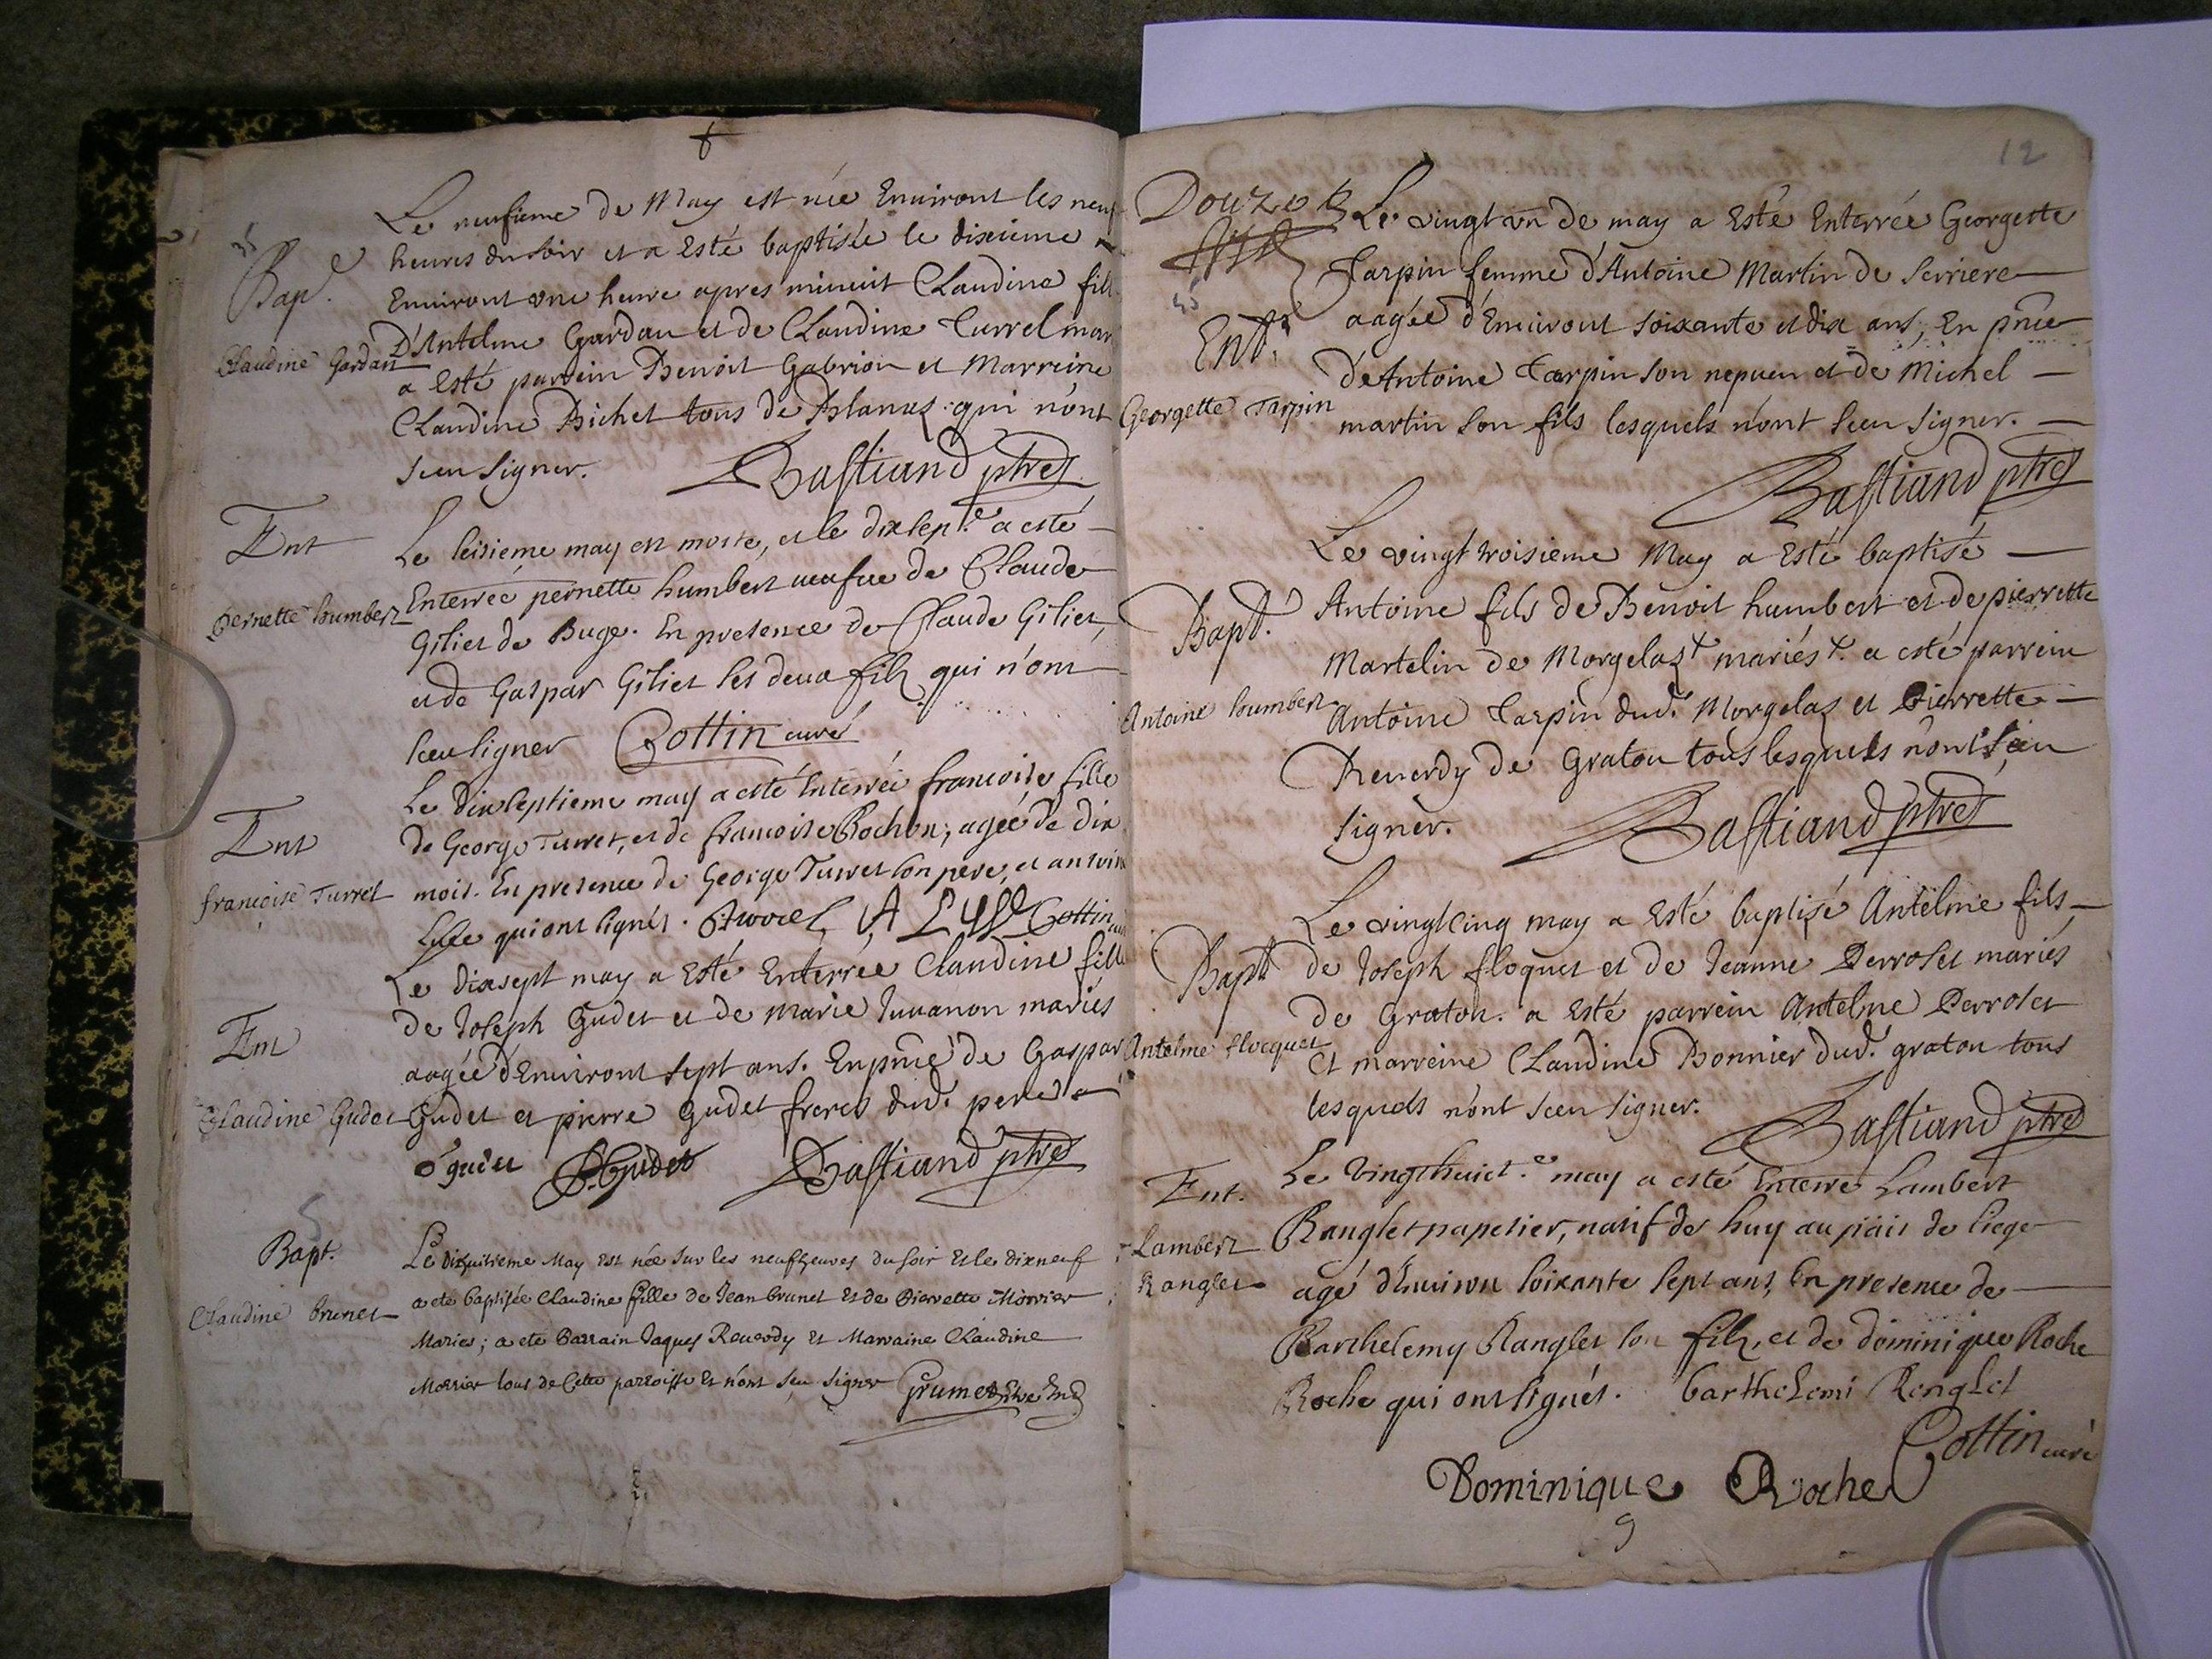 Le neufieme de May est née Environt les neuf
heures du soir et a Esté baptisée le dixieme
Environt une heure apres minuit Claudine fille
Bapt.
D'Antelme Gardan et de Claudine Turrel
Claudine Gardan
a Esté parrein Benoit Gabrion et Marreine
Claudine Bichet tous de qui n'ont
sceu signer. Bastiand ptre
Ent
Le seisieme may est morte, et le dixsept.e a esté
Enterrée pernette humbert veufue de Claude
pernette humbert
Gilier de Buge. En presence de Claude Gilier,
et de Gaspar Gilier ses deux filz qui n'ont
sceu signer Cottin curé
Le dixseptieme may a esté Enterrée francoise fille
Ent
de George Turret, et de francoise Rochon, agée de dix
francoise Turret
mois. En presence de George Turret son pere, et antoine
qui ont signés. A Cottin
Le dixsept may a Esté Enterrée Claudine fille
de Joseph Gudet et de Marie Juuanon mariés
Ent
aagée d'Environt sept ans. En pnce de Gaspar
Claudine Gudet
Gudet et pierre Gudet freres dud. pere
Gudet Bastiand ptre
Bapt.
Le dixhuitieme May Est née sur les neuf heures du soir Et le dixneuf
a eté baptisée Claudine fille de Jean brunet Et de Pierrette Morrier
Claudine brunet
Maries; a eté Parrain Jaques Reuerdy Et Marraine Claudine
Morrier tous de Cette parroisse Et n'ont sçeu signer Grumet
12
Douze
Le vingt vn de may a Esté Enterrée Georgette
Tarpin femme d'Antoine Martin de Serriere
Ent.
aagée d'Environt soixante et dix ans, En pnce
d'Antoine Tarpin son nepueu et de Michel
Georgette Tarpin
martin son fils lesquels n'ont sceu signer.
Bastiand ptre
Le vingt troisieme May a Esté baptisé
Bapt.
Antoine fils de Benoit humbert et de pierrette
Martelin de Morgelaz mariés. a esté parrein
Antoine humbert
Antoine Tarpin dud. Morgelaz et Pierrette
Reuerdy de Graton tous lesquels n'ont sceu
signer. Bastiand ptre
Le vingt cinq may a Esté baptisé Antelme fils
Bapt
de Joseph floquet et de Jeanne Perroset mariés
de Graton. a Esté parrein Antelme Perroset
Antelme flocquet
Et marreine Claudine Bonnier dud. graton tous
lesquels n'ont sceu signer. Bastiand ptre
Ent.
Le Vingthuict.e may a esté Enterré Lambert
Lambert Ranglet
Ranglet papetier, natif de huy au païs de liege
agé d'Environ soixante sept ans, En presence de
Barthelemy Ranglet son filz, et de dominique Roche
Roche qui ont signés. barthelemi Renglet
Cottin curé
Dominique Roche